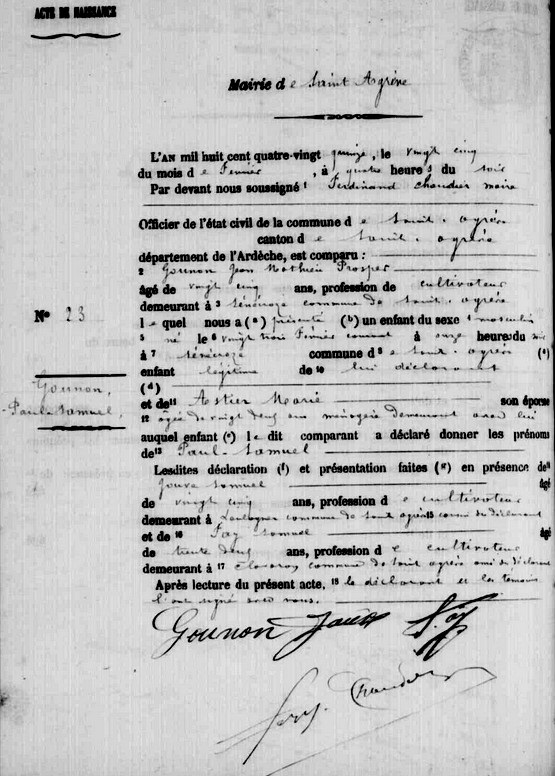 ACTE DE NAISSANCE
Mairie de Saint Agrève
L'AN mil huit cent quatre-vingt quinze, le vingt cinq
du mois de Fevrier, à quatre heures du soir
Par devant nous soussigné 1 Ferdinand Chaudier maire
Officier de l'état civil de la commune de Saint-Agrève
canton de Saint-Agrève
département de l'Ardèche, est comparu :
2 Gounon Jean Mathieu Prosper
âgé de vingt cinq ans, profession de cultivateur
demeurant à 3 commune de Saint-Agrève
No 23
lequel nous a (a) présenté (b) un enfant du sexe 4 masculin
5 né le 6 vingt trois Février courant à onze heures du soir
à 7 commune de 8 Saint-Agrève (c)
enfant légitime de 10 lui déclarant
Gounon,
Paul Samuel,
(d)
et de 11 Astier Marie son épouse
12 âgée de vingt deux ans ménagère demeurant avec lui
auquel enfant (e) le dit comparant a déclaré donner les prénoms
de 13 Paul-Samuel
Lesdites déclaration (f) et présentation faites (g) en présence de 14
Jouve Samuel âgé
de vingt cinq ans, profession de cultivateur
demeurant à commune de Saint Agrève 15 cousin du déclarant
et de 16 Fay Samuel âgé
de trente deux ans, profession de cultivateur
demeurant à 17 commune de Saint Agrève ami du déclarant
Après lecture du présent acte, 18 le déclarant et les témoins
l'ont signé avec nous.
Gounon Jouve S. Fay
Chaudier